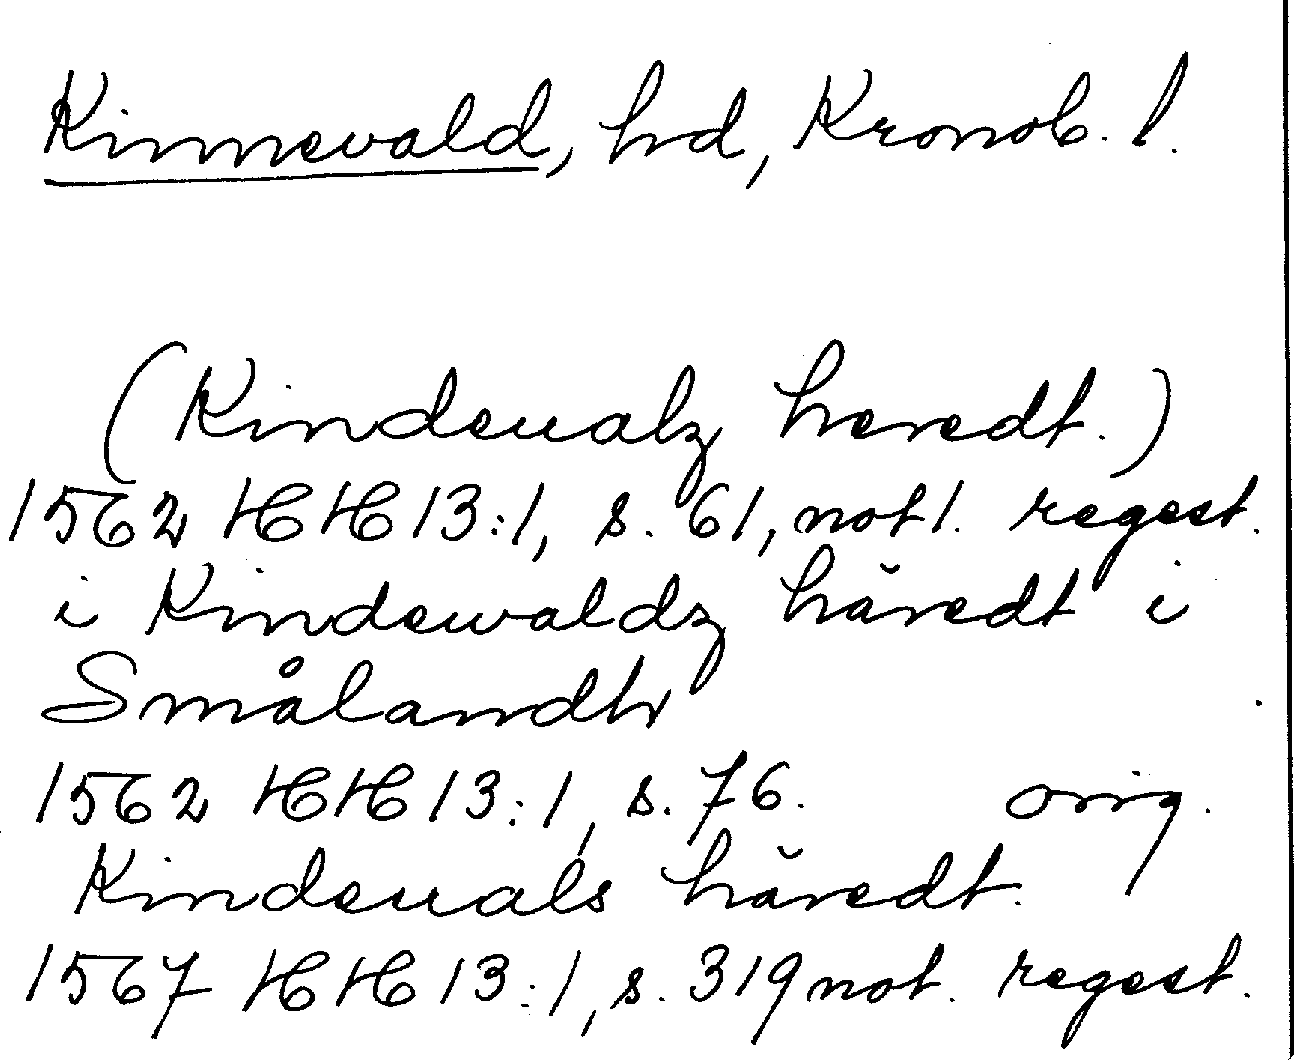 Kinnevald, hd, Kronob. l.
(Kindeualz heredt.)
1562 HH 13:1, s. 61, not 1. regest.
i Kindewaldz häredt i
Smålandh
1562 HH 13:1, s. 76. orig.
Kindeuals häredt.
1567 HH 13:1, s. 319 not. regest.